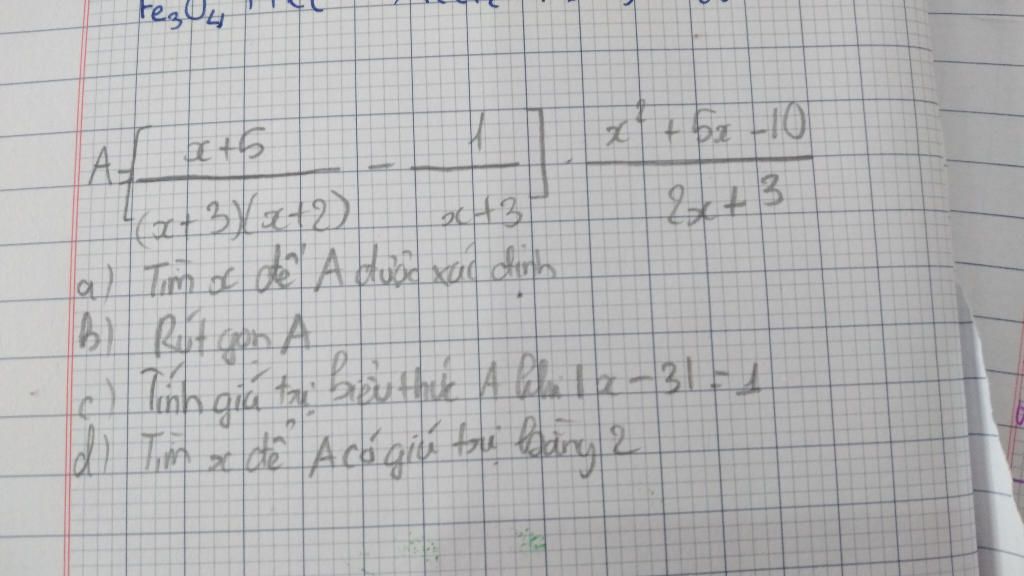 Fe₃O₄
A=[(x+5)/((x+3)(x+2)) - 1/(x+3)] . (x² + 5x - 10)/(2x+3)
a) Tìm x để A được xác định
b) Rút gọn A
c) Tính giá trị biểu thức A |x - 3| = 1
d) Tìm x để A có giá trị bằng 2